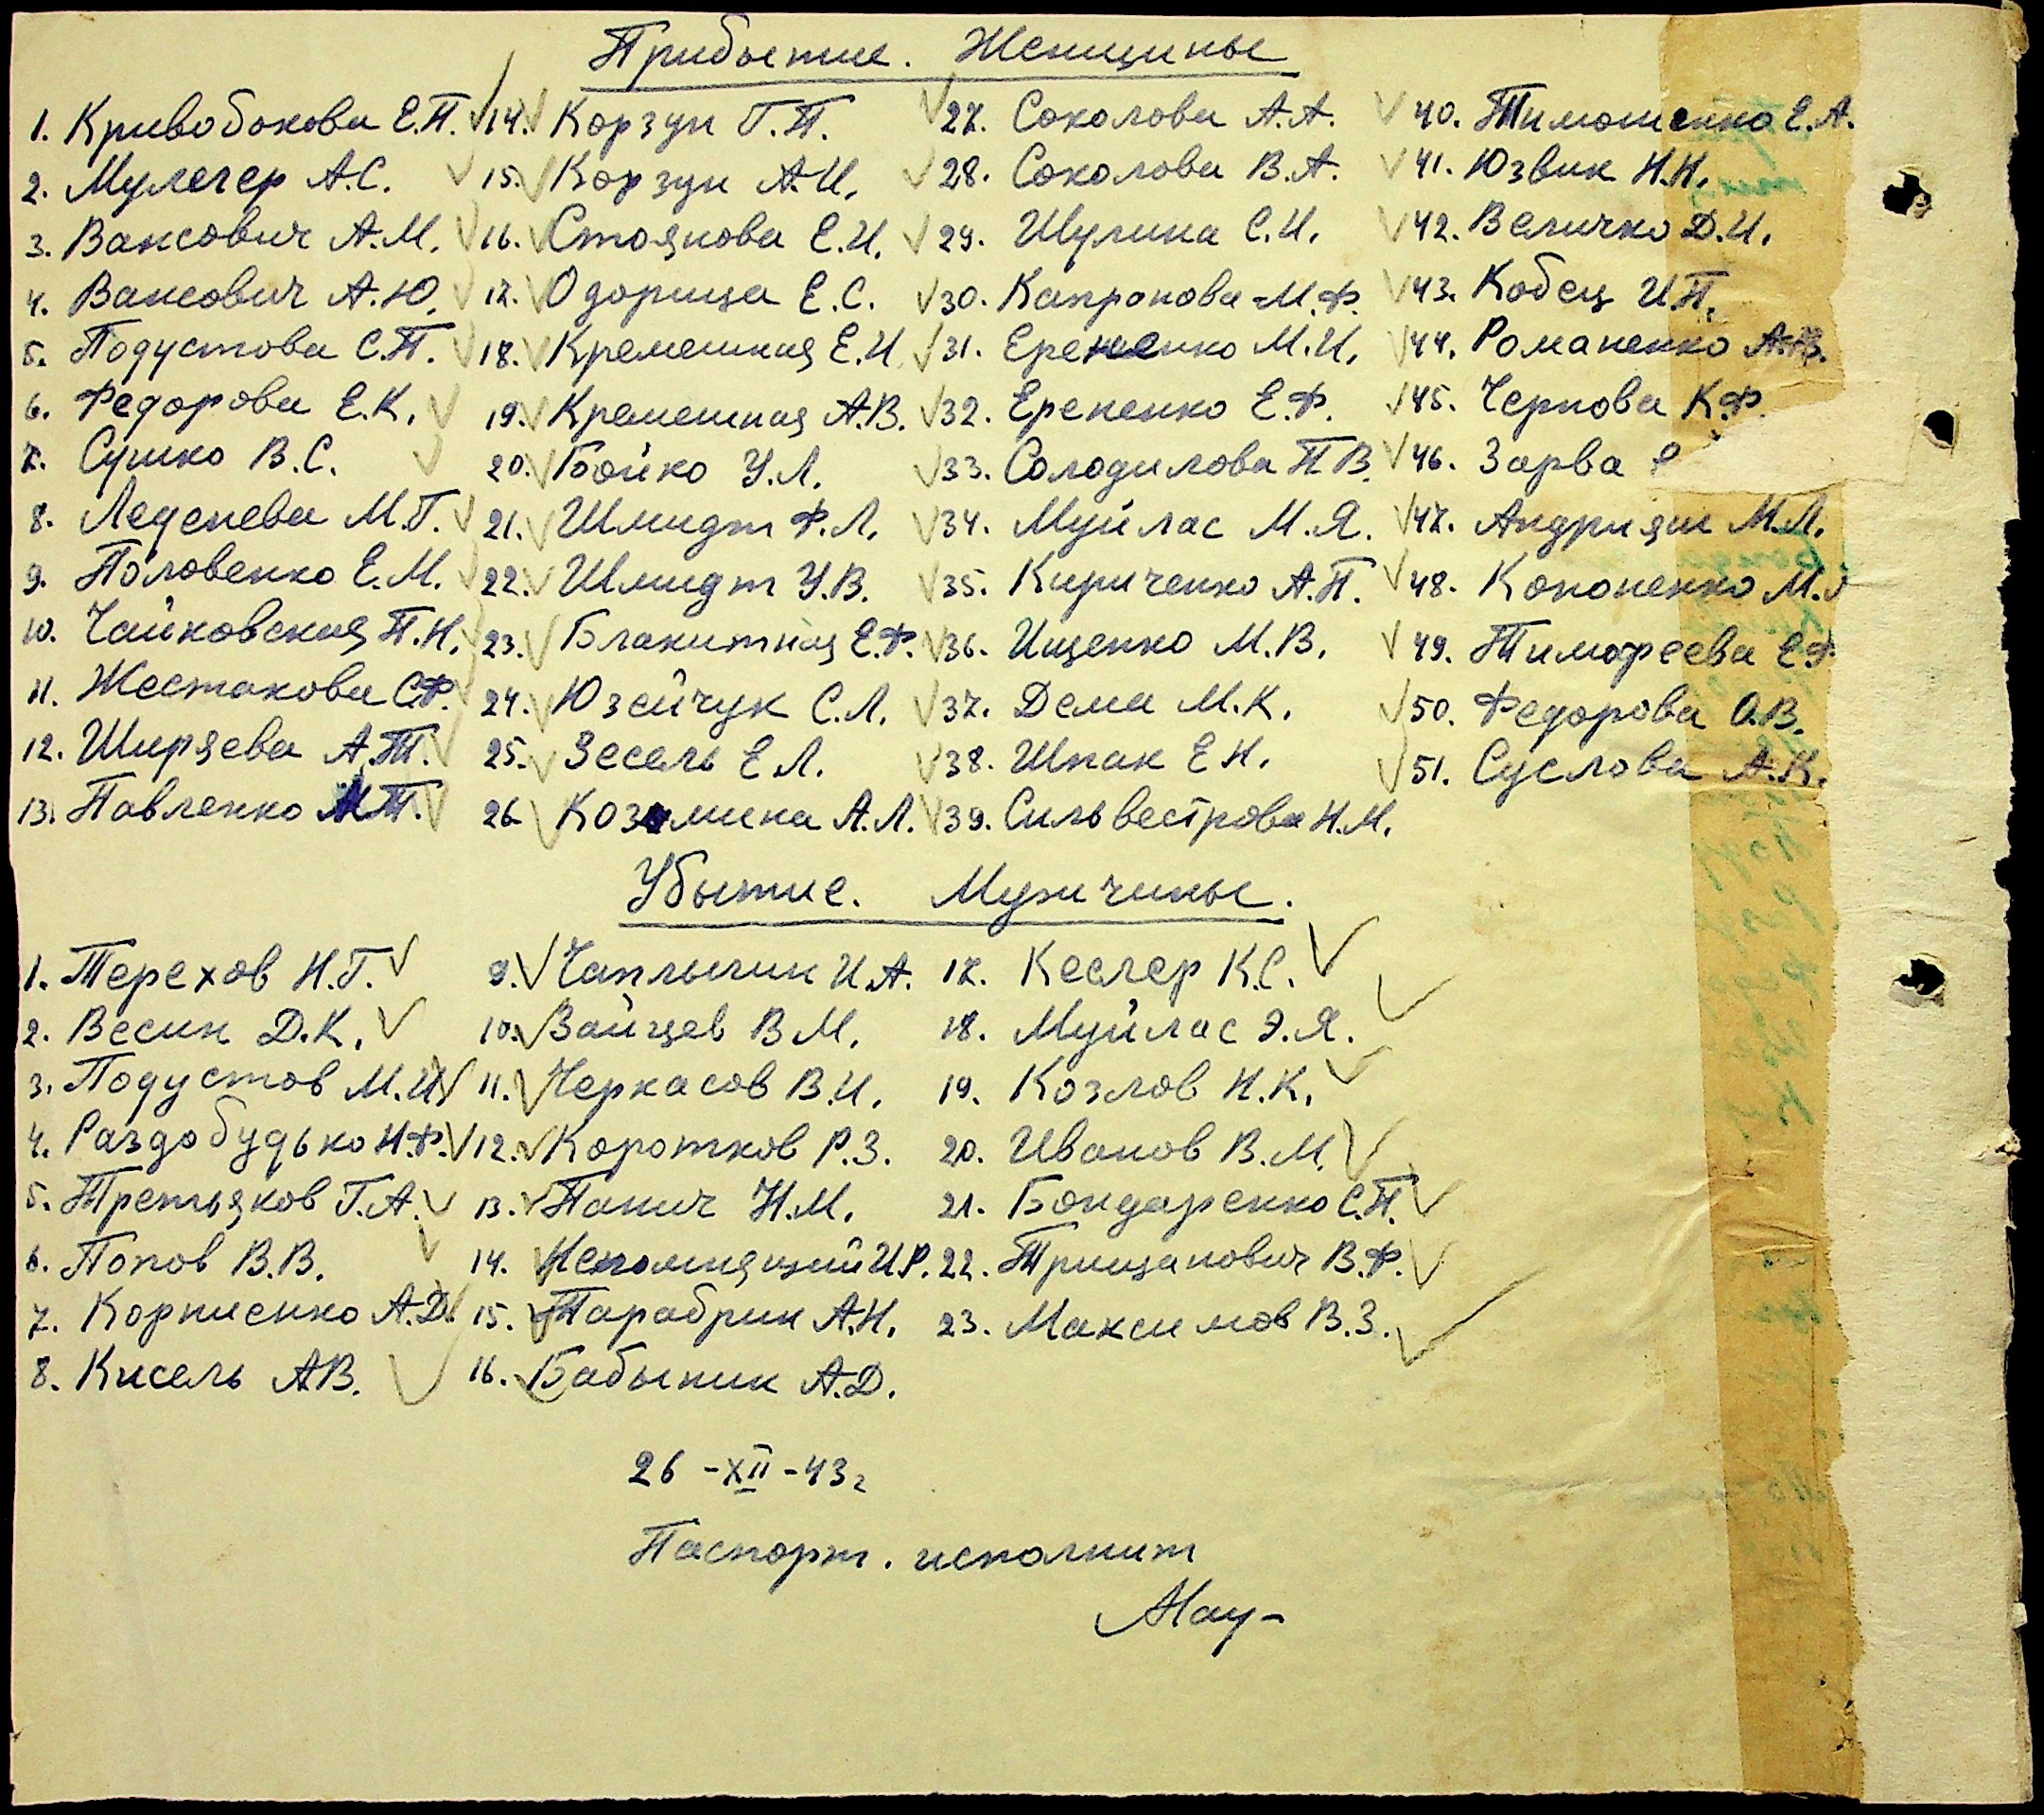 Прибытие. Женщины
1. Кривобокова Е.П.
2. Мулегер А.С.
3. Ваксович А.М.
4. Ваксович А.Ю.
5. Подустова С.П.
6. Федорова Е.К.
7. Сушко В.С.
8. Леденева М.Г.
9. Половенко Е.М.
10. Чайковская П.Н.
11. Жестакова С.Ф.
12. Ширяева А.Т.
13. Павленко М.Т.
14. Корзун Г.П.
15. Корзун А.И.
16. Стоянова Е.И.
17. Одорица Е.С.
18. Кремешная Е.И.
19. Кремешная А.В.
20. Бойко У.Л.
21. Шмидт Ф.Л.
22. Шмидт У.В.
23. Блакитная Е.Ф.
24. Юзейчук С.Л.
25. Зесель Е.Л.
26. Козьмина А.Л.
27. Соколова А.А.
28. Соколова В.А.
29. Шулика С.И.
30. Капронова М.Ф.
31. Еременко М.И.
32. Еременко Е.Ф.
33. Солодилова П.В.
34. Муйлас М.Я.
35. Кириченко А.П.
36. Ищенко М.В.
37. Дема М.К.
38. Шпак Е.Н.
39. Сильвестрова Н.М.
40. Тимошенко Е.А.
41. Юзвик Н.Н.
42. Величко Д.И.
43. Кобец И.П.
44. Романенко
45. Чернова К.Ф.
46. Зарва
47. Андриян М.Л.
48. Кононенко М.
49. Тимофеева Е.Ф.
50. Федорова О.В.
51. Суслова А.К.
Убытие. Мужчины.
1. Терехов Н.Г.
2. Весик Д.К.
3. Подустов М.И.
4. Раздобудько Н.Ф.
5. Третьяков Г.А.
6. Попов В.В.
7. Корниенко А.Д.
8. Кисель А.В.
9. Чаплыгин И.А.
10. Зайцев В.М.
11. Черкасов В.И.
12. Коротков Р.З.
13. Панич Н.М.
14. Непомнящий И.Р.
15. Тарабрин А.Н.
16. Бабынин А.Д.
17. Кеслер К.С.
18. Муйлас Э.Я.
19. Козлов Н.К.
20. Иванов В.М.
21. Бондаренко С.П.
22. Трицанович В.Ф.
23. Максимов В.З.
26-XII-43г
Паспорт. исполнит